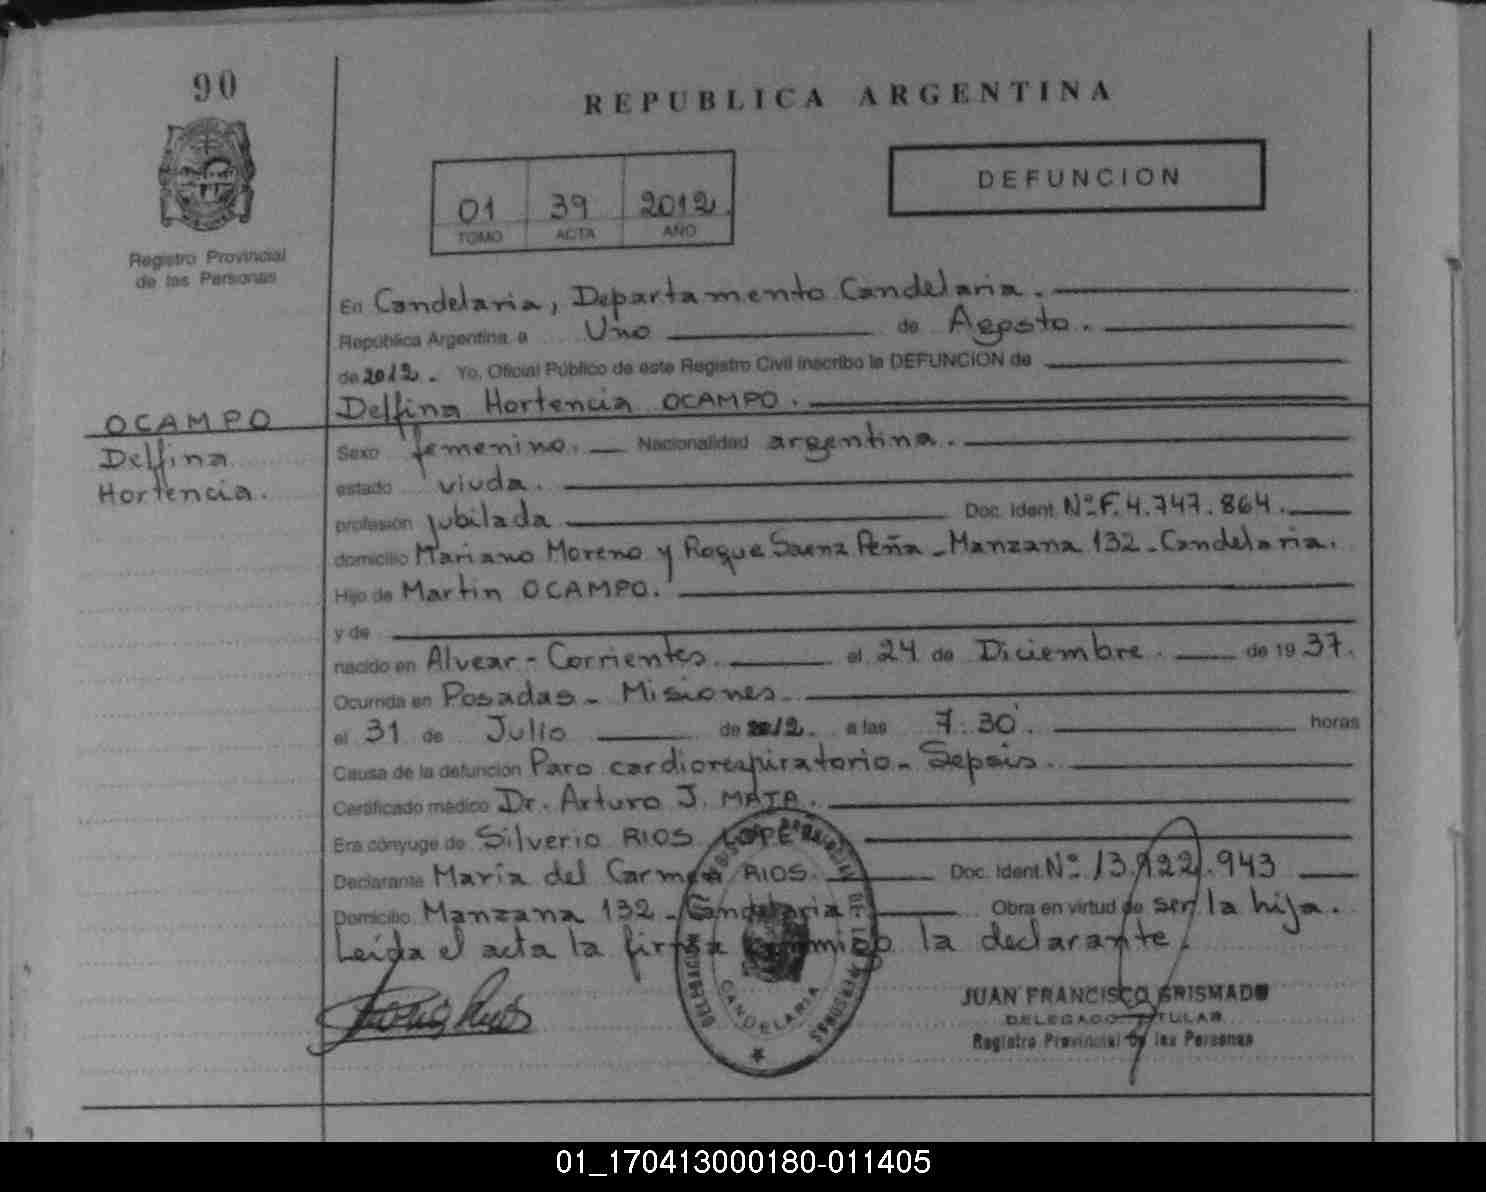 90
REPUBLICA ARGENTINA
01 39 2012
TOMO ACTA AÑO
DEFUNCION
Registro Provincial
de las Personas
En Candelaria, Departamento Candelaria.
República Argentina a Uno de Agosto.
de 2012. Yo, Oficial Público de este Registro Civil inscribo la DEFUNCION de
Delfina Hortencia OCAMPO.
OCAMPO
Delfina
Hortencia.
Sexo femenino. Nacionalidad argentina.
estado viuda.
profesión jubilada Doc. Ident. Nº F. 4.747.864.
domicilio Mariano Moreno y Roque Saenz Peña - Manzana 132 - Candelaria.
Hijo de Martin OCAMPO.
y de
nacido en Alvear - Corrientes el 24 de Diciembre. de 1937.
Ocurrida en Posadas - Misiones
el 31 de Julio de 2012. a las 7:30 horas
Causa de la defunción Paro cardiorespiratorio - Sepsis.
Certificado médico Dr. Arturo J. MATA.
Era cónyuge de Silverio RIOS
Declarante María del Carmen RIOS. Doc. Ident. Nº 13.922.943
Domicilio Manzana 132 - Candelaria Obra en virtud de ser la hija.
Leída el acta la firma conmigo la declarante.
CANDELARIA
JUAN FRANCISCO GRISMADO
DELEGADO TITULAR
Registro Provincial de las Personas
01_170413000180-011405